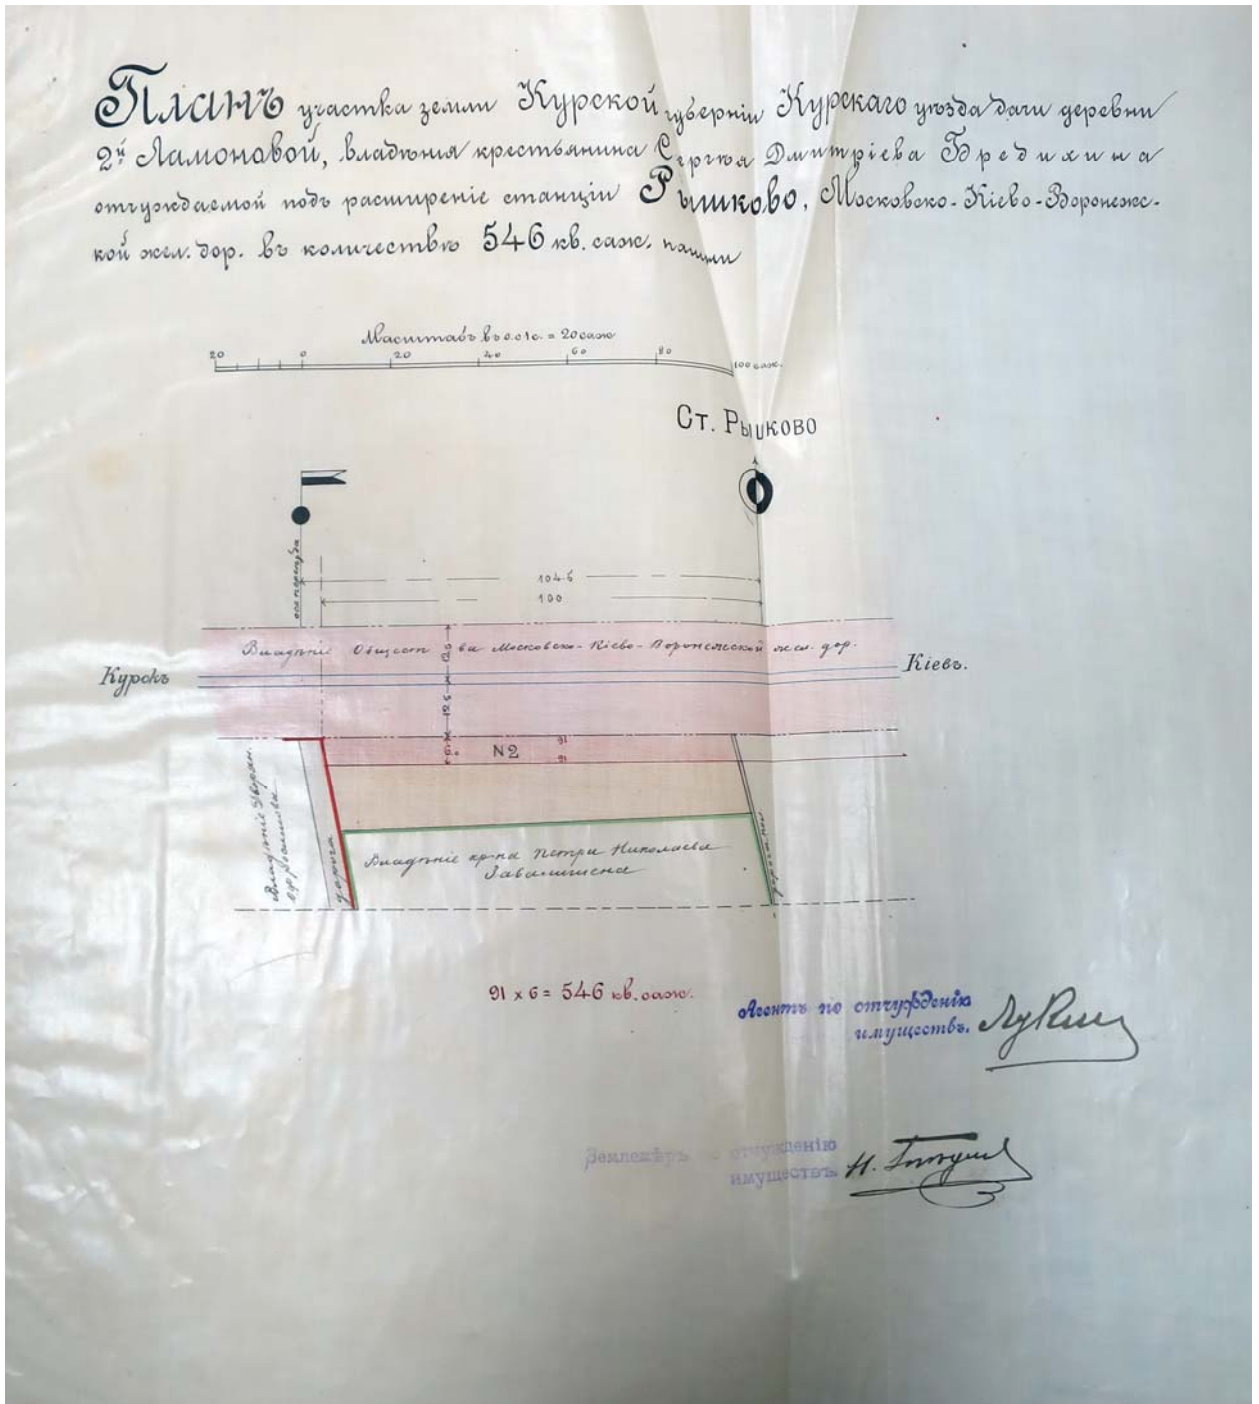 Планъ участка земли Курской губерніи Курскаго уѣзда дачи деревни
2й Ламоновой, владѣнія крестьянина Сергѣя Дмитріева Бредихина
отчуждаемой подъ расширеніе станціи Рышково, Московско-Кіево-Воронежс-
кой жел. дор. въ количествѣ 546 кв. саж. пашни
Масштабъ въ 0.01с. = 20 саж
20 0 20 40 60 80 100 саж.
Ст. Рышково
104.5
100
Владѣніе Общества Московско-Кіево-Воронежской жел. дор.
Курскъ
Кіевъ.
12.5
N2
91
6.0
91
Владѣніе
дорога
Владѣніе кр-на Петра Николаева
Завалишена
91 x 6 = 546 кв. саж.
Агентъ по отчужденію
имуществъ.
Землемѣръ по отчужденію
имуществъ